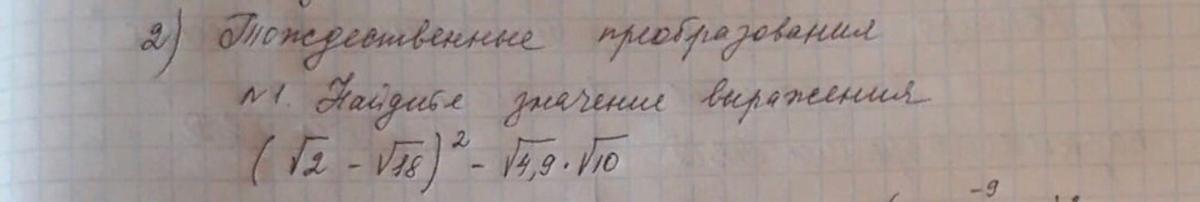 2) Тождественные преобразования
№1. Найдите значение выражения
(√2 - √18)² - √4,9 · √10
-9